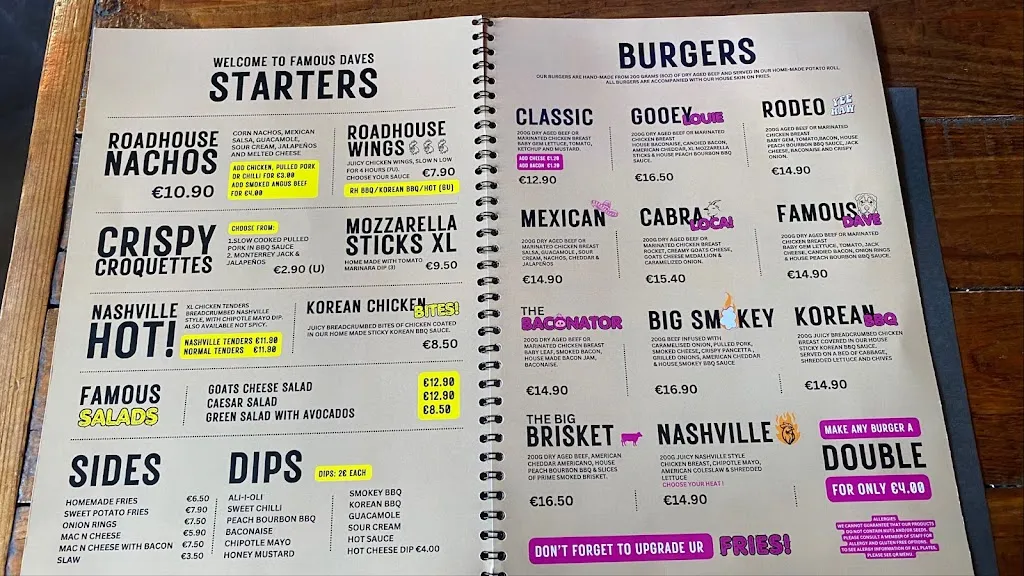 WELCOME TO FAMOUS DAVES
STARTERS
ROADHOUSE
NACHOS
€10.90
CORN NACHOS, MEXICAN
SALSA, GUACAMOLE,
SOUR CREAM, JALAPEÑOS
AND MELTED CHEESE
ADD CHICKEN, PULLED PORK
OR CHILLI FOR €3.00
ADD SMOKED ANGUS BEEF
FOR €4.00
ROADHOUSE
WINGS
JUICY CHICKEN WINGS, SLOW N LOW
FOR 4 HOURS (7U).
CHOOSE YOUR SAUCE
€7.90
RH BBQ/KOREAN BBQ/HOT (6U)
CRISPY
CROQUETTES
CHOOSE FROM:
1.SLOW COOKED PULLED
PORK IN BBQ SAUCE
2. MONTERREY JACK &
JALAPEÑOS
€2.90 (U)
MOZZARELLA
STICKS XL
HOME MADE WITH TOMATO
MARINARA DIP (3)
€9.50
NASHVILLE
HOT!
XL CHICKEN TENDERS
BREADCRUMBED NASHVILLE
STYLE, WITH CHIPOTLE MAYO DIP.
ALSO AVAILABLE NOT SPICY.
NASHVILLE TENDERS €11.90
NORMAL TENDERS €11.90
KOREAN CHICKEN
BITES!
JUICY BREADCRUMBED BITES OF CHICKEN COATED
IN OUR HOME MADE STICKY KOREAN BBQ SAUCE.
€8.50
FAMOUS
SALADS
GOATS CHEESE SALAD €12.90
CAESAR SALAD €12.90
GREEN SALAD WITH AVOCADOS €8.50
SIDES
HOMEMADE FRIES €6.50
SWEET POTATO FRIES €7.90
ONION RINGS €7.50
MAC N CHEESE €5.90
MAC N CHEESE WITH BACON €7.50
SLAW €3.50
DIPS
DIPS: 2€ EACH
ALI-I-OLI
SWEET CHILLI
PEACH BOURBON BBQ
BACONAISE
CHIPOTLE MAYO
HONEY MUSTARD
SMOKEY BBQ
KOREAN BBQ
GUACAMOLE
SOUR CREAM
HOT SAUCE
HOT CHEESE DIP €4.00
BURGERS
OUR BURGERS ARE HAND-MADE FROM 200 GRAMS (8OZ) OF DRY AGED BEEF AND SERVED IN OUR HOME-MADE POTATO ROLL.
ALL BURGERS ARE ACCOMPANIED WITH OUR HOUSE SKIN ON FRIES.
CLASSIC
200G DRY AGED BEEF OR
MARINATED CHICKEN BREAST
BABY GEM LETTUCE, TOMATO,
KETCHUP AND MUSTARD
ADD CHEESE €1.20
ADD BACON €1.20
€12.90
GOOEY
LOUIE
200G DRY AGED BEEF OR MARINATED
CHICKEN BREAST
HOUSE BACONAISE, CANDIED BACON,
AMERICAN CHEDDAR, XL MOZZARELLA
STICKS & HOUSE PEACH BOURBON BBQ
SAUCE
€16.50
RODEO
YEE
HAW
200G DRY AGED BEEF OR MARINATED
CHICKEN BREAST
BABY GEM, TOMATO,BACON, HOUSE
PEACH BOURBON BBQ SAUCE, JACK
CHEESE, BACONAISE AND CRISPY
ONION.
€14.90
MEXICAN
200G DRY AGED BEEF OR
MARINATED CHICKEN BREAST
SALSA, GUACAMOLE , SOUR
CREAM, NACHOS, CHEDDAR &
JALAPEÑOS
€14.90
CABRA
LOCA!
200G DRY AGED BEEF OR
MARINATED CHICKEN BREAST
ROCKET, CREAMY GOATS CHEESE,
GOATS CHEESE MEDALLION &
CARAMELIZED ONION.
€15.40
FAMOUS
DAVE
200G DRY AGED BEEF OR MARINATED
CHICKEN BREAST
BABY GEM LETTUCE, TOMATO, JACK
CHEESE, CANDIED BACON, ONION RINGS
& HOUSE PEACH BOURBON BBQ SAUCE.
€14.90
THE
BACONATOR
200G DRY AGED BEEF OR
MARINATED CHICKEN BREAST
BABY LEAF, SMOKED BACON,
HOUSE MADE BACON JAM,
BACONAISE.
€14.90
BIG SMOKEY
200G BEEF INFUSED WITH
CARAMELISED ONION, PULLED PORK,
SMOKED CHEESE, CRISPY PANCETTA ,
GRILLED ONIONS, AMERICAN CHEDDAR
& HOUSE,SMOKEY BBQ SAUCE
€16.90
KOREAN
BBQ
200G JUICY BREADCRUMBED CHICKEN
COVERED IN OUR HOUSE
STICKY KOREAN BBQ SAUCE,
SERVED ON A BED OF CABBAGE,
SHREDDED LETTUCE AND CHIVES
€14.90
THE BIG
BRISKET
200G DRY AGED BEEF, AMERICAN
CHEDDAR AMERICANO, HOUSE
PEACH BOURBON BBQ & SLICES
OF PRIME SMOKED BRISKET.
€16.50
NASHVILLE
200G JUICY NASHVILLE STYLE
CHICKEN BREAST, CHIPOTLE MAYO,
AMERICAN COLESLAW & SHREDDED
LETTUCE
CHOOSE YOUR HEAT !
€14.90
MAKE ANY BURGER A
DOUBLE
FOR ONLY €4.00
DON'T FORGET TO UPGRADE UR FRIES!
ALLERGIES
WE CANNOT GUARANTEE THAT OUR PRODUCTS
DO NOT CONTAIN NUTS AND/OR SEEDS.
PLEASE CONSULT A MEMBER OF STAFF FOR
ALLERGY AND GLUTEN FREE OPTIONS.
TO SEE ALLERGY INFORMATION OF ALL PLATES,
PLEASE SEE QR MENU